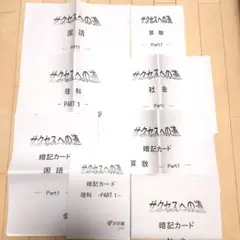 サクセスへの道
国語
Part1
サクセスへの道
算数
Part1
サクセスへの道
理科
- PART 1 -
サクセスへの道
社会
Part1
サクセスへの道
暗記カード
国語
Part1
サクセスへの道
暗記カード
理科 -PART 1-
サクセスへの道
暗記カード
算数
Part1
サクセスへの道
暗記カード